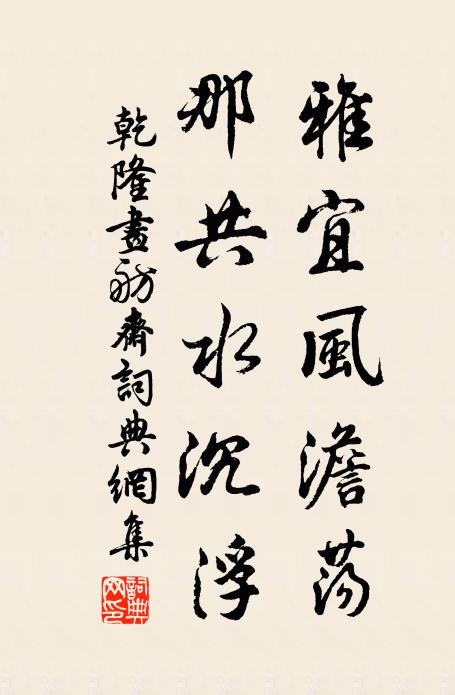 雅宜風澹蕩
那共水沉浮
乾隆畫舫齋詞典網集
詞典网印